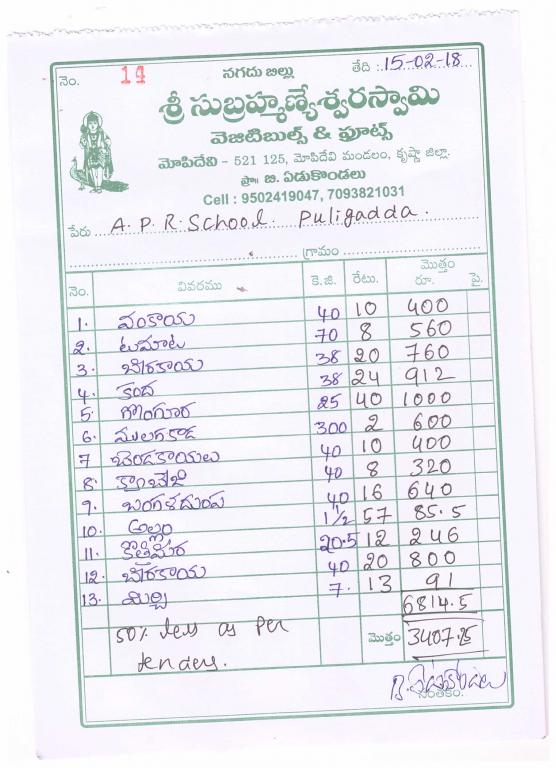 నెం. 14 నగదు బిల్లు తేది :.15-02-18
శ్రీ సుబ్రహ్మణ్యేశ్వరస్వామి
వెజిటిబుల్స్ & ఫ్రూట్స్
మోపిదేవి - 521 125, మోపిదేవి మండలం, కృష్ణా జిల్లా.
ప్రొ॥ బి. ఏడుకొండలు
Cell : 9502419047, 7093821031
పేరు A. P. R. School. Puligadda.
గ్రామం
నెం. వివరము కె.జి. రేటు. మొత్తం రూ. పై.
1. వంకాయ 40 10 400
2. టుమాట 70 8 560
3. బీరకాయ 38 20 760
4. కంద 38 24 912
5. గోంగూర 25 40 1000
6. ములగకాడ 300 2 600
7 బెండకాయలు 40 10 400
8. క్యాబేజి 40 8 320
9. బంగాళదుంప 40 16 640
10. అల్లం 1½ 57 85.5
11. కొత్తిమీర 20.5 12 246
12. బీరకాయ 40 20 800
13. మిర్చి 7. 13 91
6814.5
50% less as per
tenders.
మొత్తం 3407.25
B. ఏడుకొండలు
సంతకం.